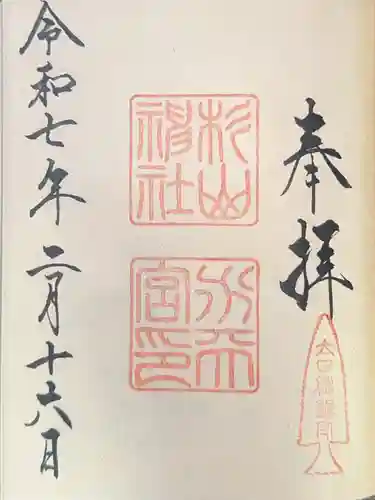 奉拝
杉山
神社
水天
宮印
令和七年二月十六日